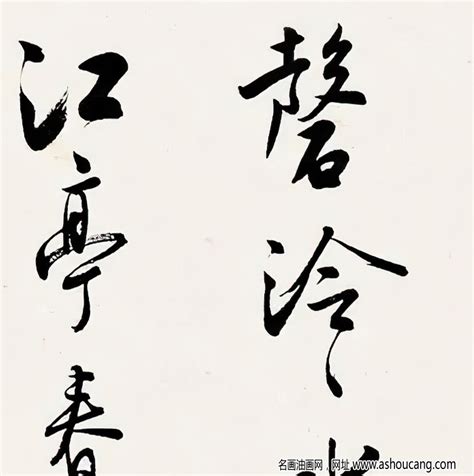 磬泠
江亭春
名画油画网，网址 www.ashoucang.com